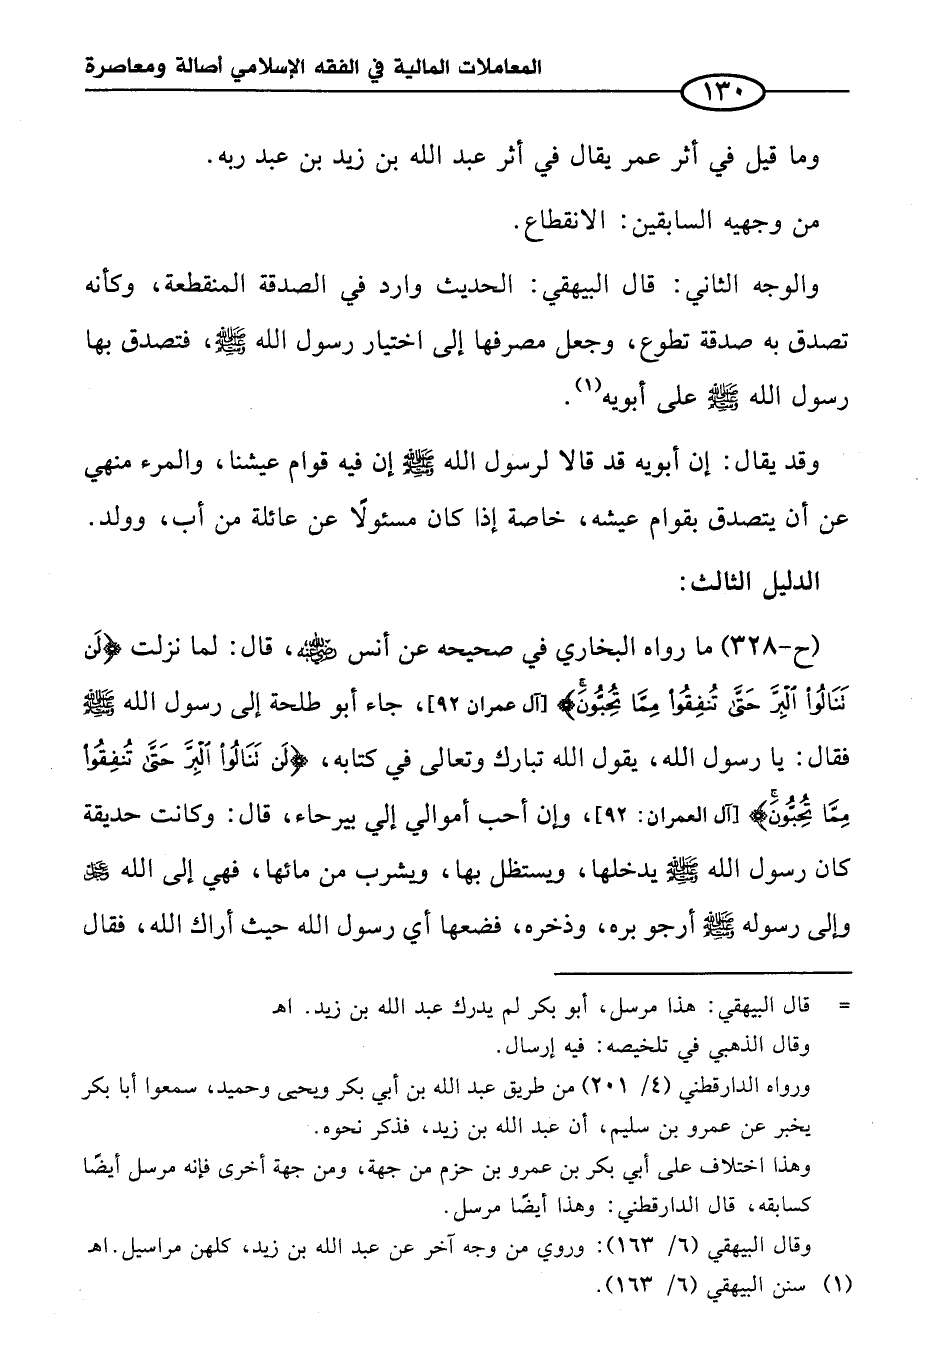 المعاملات المالية في الفقه الإسلامي أصالة ومعاصرة
١٣٠
وما قيل في أثر عمر يقال في أثر عبد الله بن زيد بن عبد ربه.
من وجهيه السابقين: الانقطاع.
والوجه الثاني: قال البيهقي: الحديث وارد في الصدقة المنقطعة، وكأنه
تصدق به صدقة تطوع، وجعل مصرفها إلى اختيار رسول الله ﷺ، فتصدق بها
رسول الله ﷺ على أبويه(١).
وقد يقال: إن أبويه قد قالا لرسول الله ﷺ إن فيه قوام عيشنا، والمرء منهي
عن أن يتصدق بقوام عيشه، خاصة إذا كان مسئولًا عن عائلة من أب، وولد.
الدليل الثالث:
(ح-٣٢٨) ما رواه البخاري في صحيحه عن أنس رضي الله عنه، قال: لما نزلت ﴿لَن
نَنَالُوا۟ ٱلْبِرَّ حَتَّىٰ تُنفِقُوا۟ مِمَّا تُحِبُّونَۚ﴾ [آل عمران ٩٢]، جاء أبو طلحة إلى رسول الله ﷺ
فقال: يا رسول الله، يقول الله تبارك وتعالى في كتابه، ﴿لَن نَنَالُوا۟ ٱلْبِرَّ حَتَّىٰ تُنفِقُوا۟
مِمَّا تُحِبُّونَۚ﴾ [آل العمران: ٩٢]، وإن أحب أموالي إلي بيرحاء، قال: وكانت حديقة
كان رسول الله ﷺ يدخلها، ويستظل بها، ويشرب من مائها، فهي إلى الله ﷻ
وإلى رسوله ﷺ أرجو بره، وذخره، فضعها أي رسول الله حيث أراك الله، فقال
= قال البيهقي: هذا مرسل، أبو بكر لم يدرك عبد الله بن زيد. اهـ
وقال الذهبي في تلخيصه: فيه إرسال.
ورواه الدارقطني (٤/ ٢٠١) من طريق عبد الله بن أبي بكر ويحيى وحميد، سمعوا أبا بكر
يخبر عن عمرو بن سليم، أن عبد الله بن زيد، فذكر نحوه.
وهذا اختلاف على أبي بكر بن عمرو بن حزم من جهة، ومن جهة أخرى فإنه مرسل أيضًا
كسابقه، قال الدارقطني: وهذا أيضًا مرسل.
وقال البيهقي (٦/ ١٦٣): وروي من وجه آخر عن عبد الله بن زيد، كلهن مراسيل.اهـ
(١) سنن البيهقي (٦/ ١٦٣).